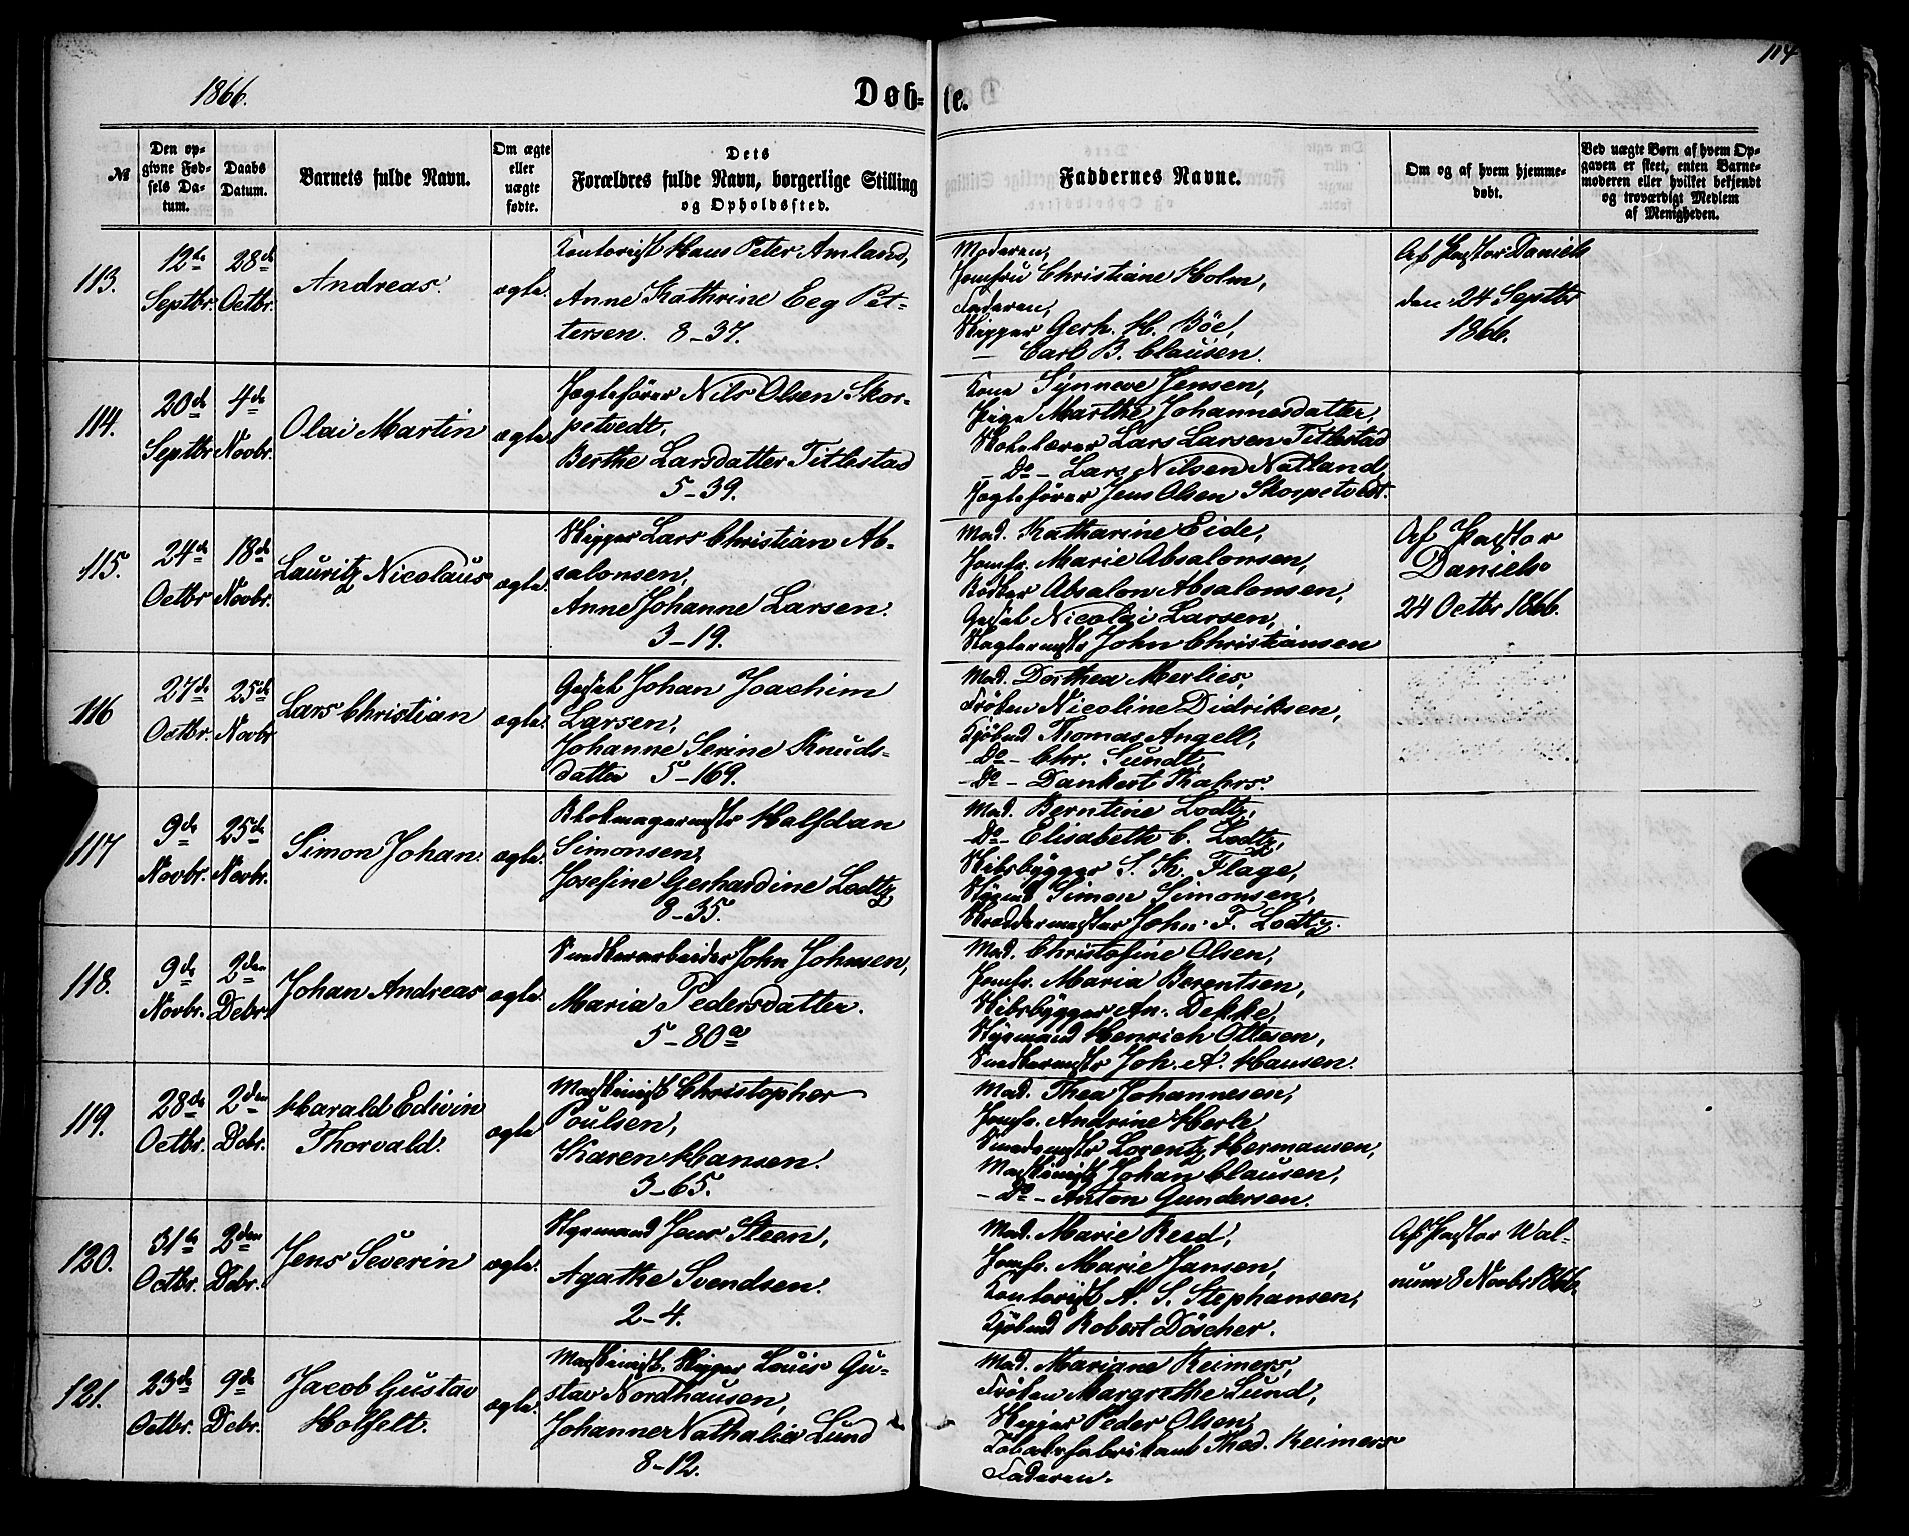 114
1866.
Døb-te.
№
Den op-
givne Fød-
sels Da-
tum.
Daabs
Datum.
Barnets fulde Navn.
Om ægte
eller
uægte
fødte.
Dets
Forældres fulde Navn, borgerlige Stilling
og Opholdssted.
Faddernes Navne.
Om og af hvem hjemme-
døbt.
Ved uægte Børn af hvem Op-
gaven er skeet, enten Barne-
moderen eller hvilket bekjendt
og troværdigt Medlem
af Menigheden.
113.
12te
Septbr.
28de
Octbr.
Andreas.
ægte.
Kontorist Hans Peter Amland,
Anne Kathrine Eeg Pet-
tersen. 8-37.
Moderen,
Jomfru Christiane Holm,
Faderen,
Skipper Gerh. H. Böe,
— Carl B. Clausen.
Af Pastor Daniels
den 24 Septbr
1866.
114.
20de
Septbr
4de
Novbr.
Olai Martin
ægte.
Jægtefører Nils Olsen Skor-
petvedt,
Berthe Larsdatter Titlestad
5-39.
Kone Synneve Jensen,
Pige Marthe Johannesdatter,
Skolelærer Lars Larsen Titlestad
- Do - Lars Nilsen Natland,
Jægtefører Jens Olsen Skorpetvedt.
115.
24de
Octbr
18de
Novbr.
Lauritz Nicolaus
ægte.
Skipper Lars Christian Ab-
salonsen,
Anne Johanne Larsen.
3-19.
Mad. Katharine Eide,
Jomfr. Marie Absalonsen,
Bödker Absalon Absalonsen,
Gesel Nicolai Larsen,
Slagtermstr John Christiansen
Af Pastor
Daniels
24 Octbr 1866.
116
27de
Octbr.
25de
Novbr
Lars Christian
ægte.
Gesel Johan Joachim
Larsen,
Johanne Serine Knuds-
datter 5-169.
Mad. Dorthea Merlies,
Frøken Nicoline Didriksen,
Kjöbmd Thomas Angell,
- Do - Chr. Sundt,
- Do - Dankert Kahrs.
117
9de
Novbr.
25de
Novbr.
Simon Johan.
ægte.
Blokmagermstr Halfdan
Simonsen,
Josefine Gerhardine Lodtz
8-35.
Mad. Berntine Lodtz,
- Do - Elisabeth C. Lodtz,
Skibsbygger S. K. Flage,
Simon Simonsen,
Skræddermester John F. Lodtz.
118.
9de
Novbr.
2den
Debr.
Johan Andreas
ægte.
Snedkerarbeider John Johnsen,
Maria Pedersdatter.
5-80a
Mad. Christofine Olsen,
Jomfr. Maria Berentsen,
Skibsbygger An. Dekke,
Styrmand Henrich Ottesen,
Snedkermstr Joh. A. Hansen.
119.
28de
Octbr.
2den
Debr.
Harald Edivin
Thorvald.
ægte
Maskinist Christopher
Poulsen,
Karen Hansen.
3-65.
Mad. Thea Johannesen,
Jomfr. Andrine Herle
Smedemstr Lorentz Hermansen,
Maskinist Johan Clausen,
- Do - Anton Gundersen.
120.
31te
Octbr.
2den
Debr.
Jens Severin
ægte.
Styrmand Jens Steen,
Agathe Svendsen.
2-4.
Mad. Marie Reed,
Jomfr. Marie Jansen,
Kontorist A. S. Stephansen,
Kjöbmd Robert Döscher.
Af Pastor Wal-
num 8 Novbr 1866.
121.
23de
Octbr.
9de
Debr.
Jacob Gustav
Holfelt.
ægte.
Maskinist. Skipper Louis Gu-
stav Nordhausen,
Johanne Nathalia Lund
8-12.
Mad. Mariane Reimers,
Frøken Margrethe Lund,
Skipper Peder Olsen,
Tobaksfabrikant Thod. Reimers
Faderen.